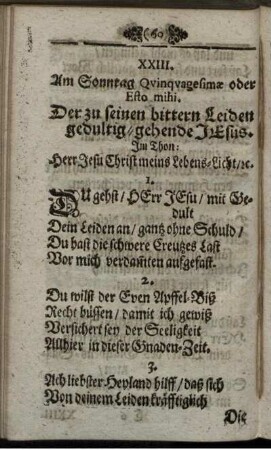 (60)
XXIII.
Am Sonntag Qvinqvagesimæ oder
Esto mihi.
Der zu seinen bittern Leiden
gedultig/gehende JEsus.
Im Thon:
Herr Jesu Christ meins Lebens-Licht/ꝛc.
1.
DU gehst/ HErr JEsu/ mit Ge-
dult
Dein Leiden an/ gantz ohne Schuld/
Du hast die schwere Creutzes Last
Vor mich verdam̃ten aufgefast.
2.
Du wilst der Even Apffel-Biß
Recht büssen/ damit ich gewiß
Versichert sey der Seeligkeit
Allhier in dieser Gnaden-Zeit.
3.
Ach liebster Heyland hilff/ daß sich
Von deinem Leiden kräfftiglich
Die